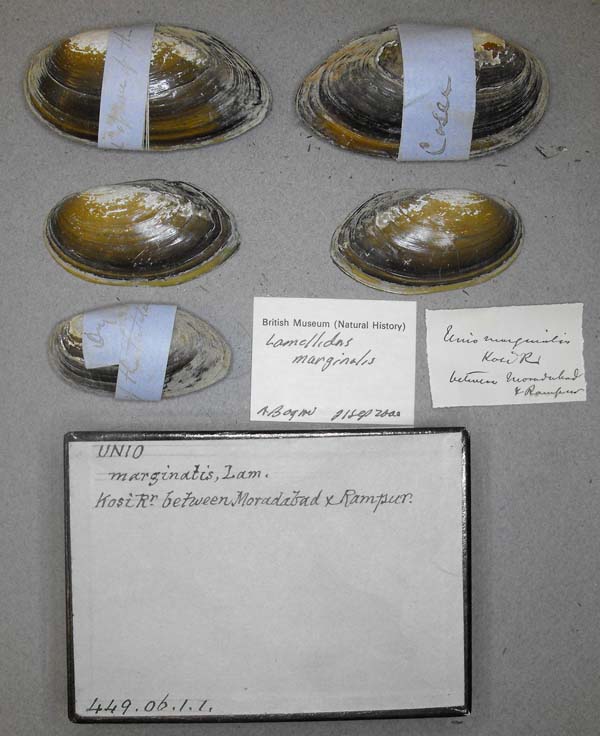 Cosee
British Museum (Natural History)
Lamellidens
marginalis
Unio marginalis
Kosi Rr
between Moradabad
& Rampur
UNIO
marginalis, Lam.
Kosi Rr between Moradabad & Rampur.
449.06.1.1.